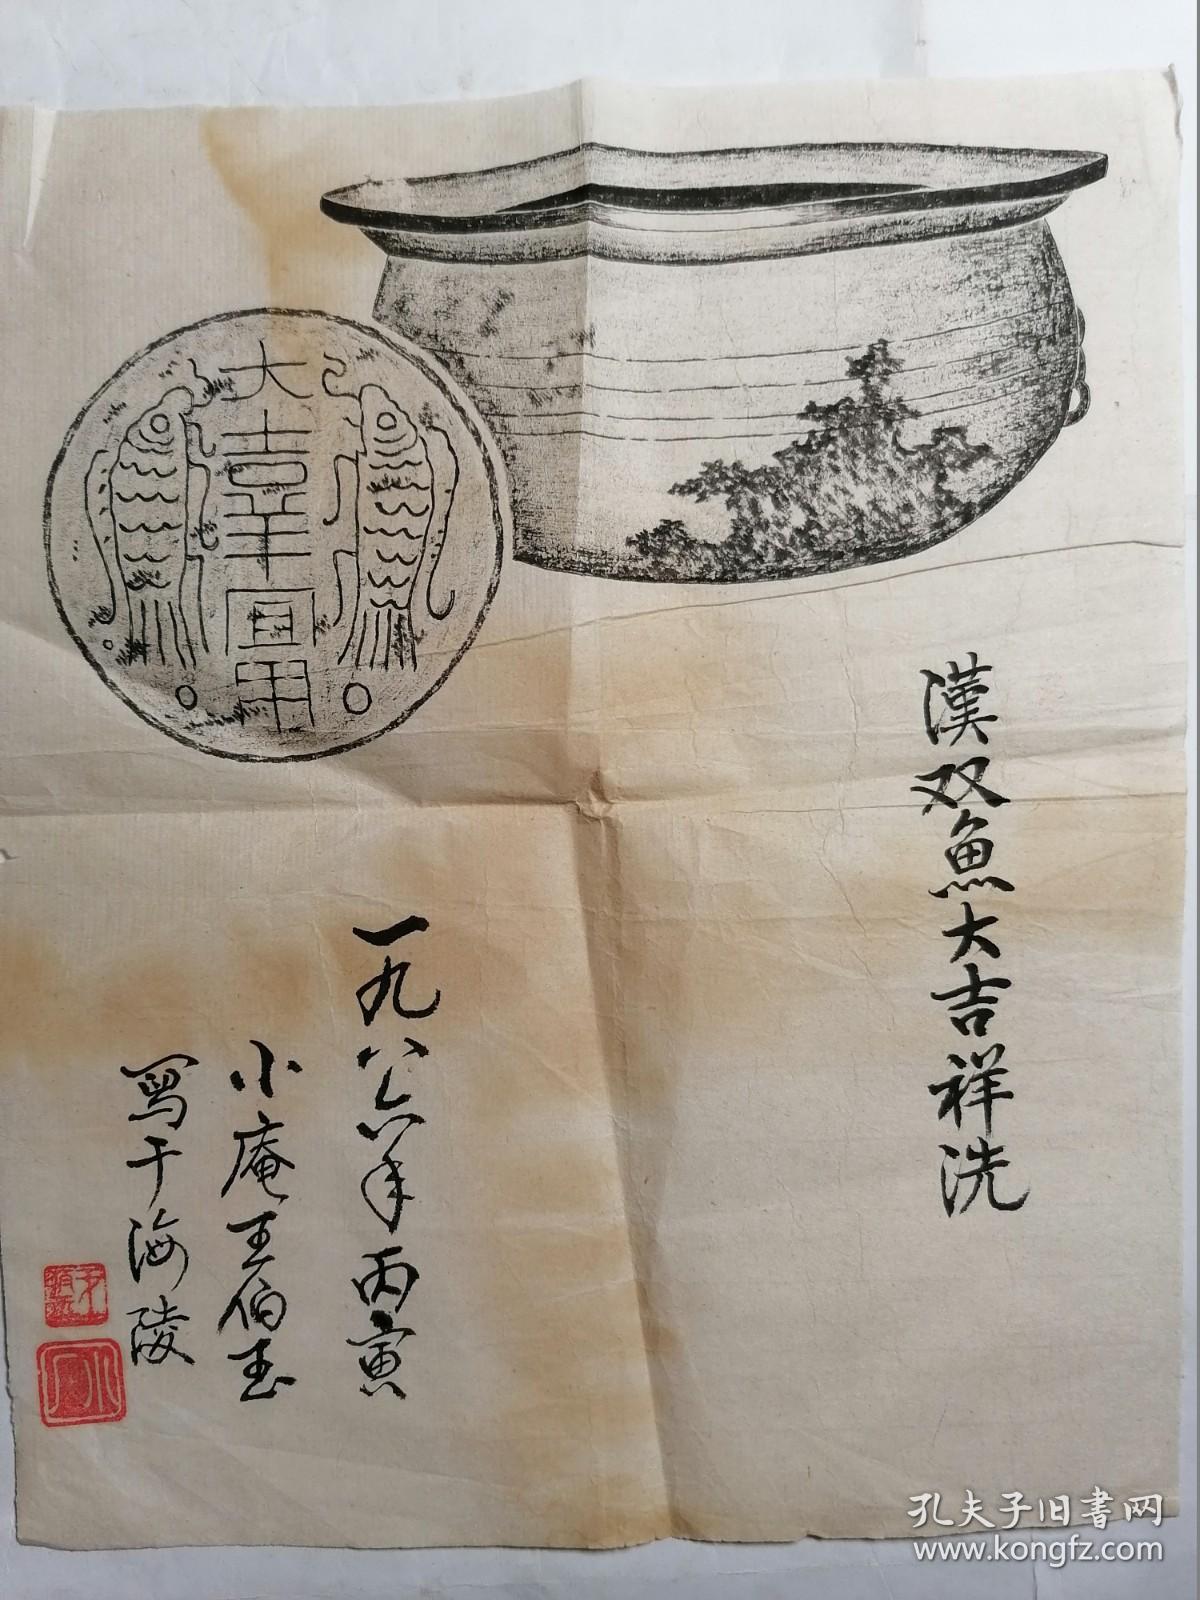 大吉羊宜用
漢双魚大吉祥洗
一九八六年丙寅
小庵王伯玉
写于海陵
孔夫子旧书网
www.kongfz.com